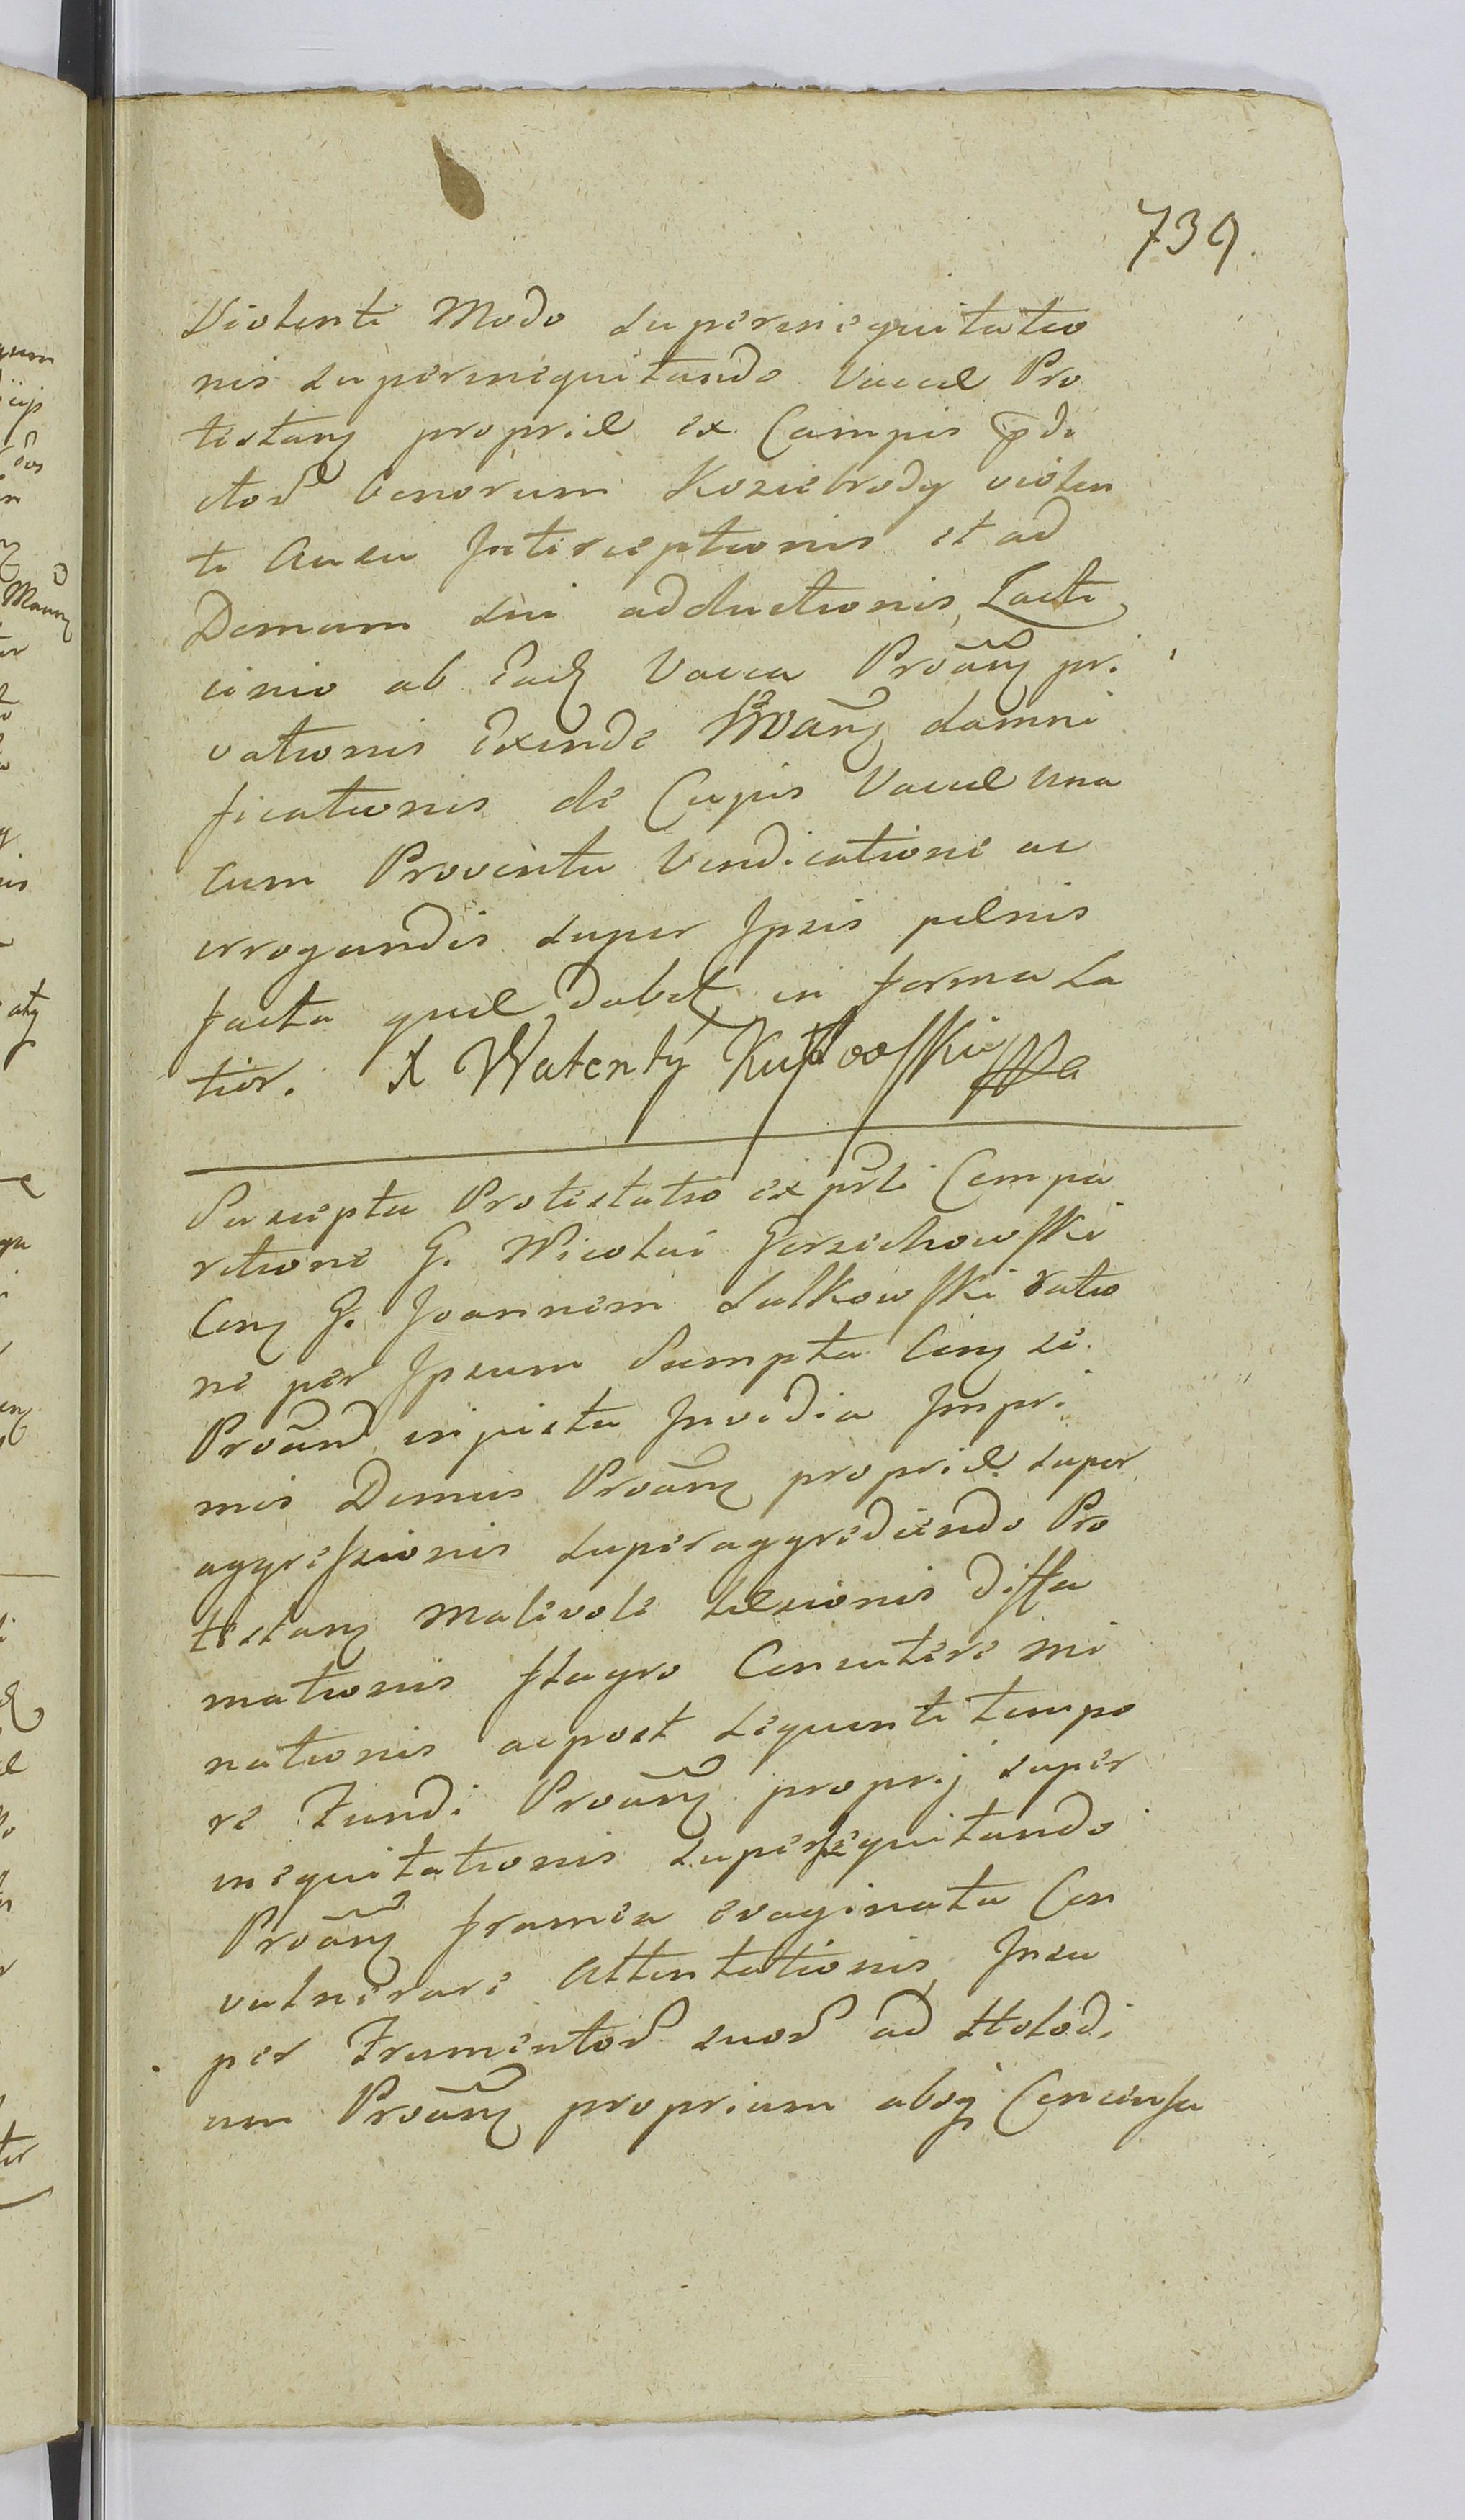 739.
Violenti Modo superinequitatio
nis superinequitando Vaccæ Pro
testang propriæ ex Campis p̃di
ctor̃ bonorum Koziebrody violen
ti Ausu Interceptionis et ad
Domum sui adductionis, Lacti
cinio ab Eadꝫ Vacca Prõang pri
vationis Exinde Prõang damni
ficationis de Cujus Vaccæ una
cum Proventu Vendicatione ac
irrogandis super Ipsis pænis
facta quæ dabit in forma La
tior. X Walenty
Suscepta Protestatio ex p̃sti Compa
ritione G. Nicolai Gorzechowski
Con G. Joannem Sulkowski ratio
ne per Ipsum Sumpta Con se
Prõand injusta Invidia Impri
mis Domus Prõang propriæ super
aggressionis superaggrediendo Pro
testang Malevole læsionis diffa
mationis flagro Concutere mi
nationis ac post sequenti tempo
re Fundi Prõang proprij super
inequitationis superequitando
Prõang framea evaginata Con
vulnerare Attentationis, Insu
per Frumentor̃ suor̃ ad Holodi
um Prõang proprium absq Concensu